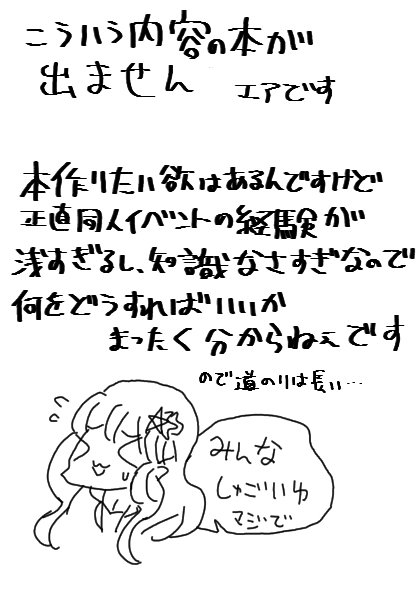 こういう内容の本が
出ません エアです
本作りたい欲はあるんですけど
正直同人イベントの経験が
浅すぎるし、知識なさすぎなので
何をどうすればいいか
まったく分からねぇです
ので道のりは長い…
みんな
しゅごいゆ
マジで